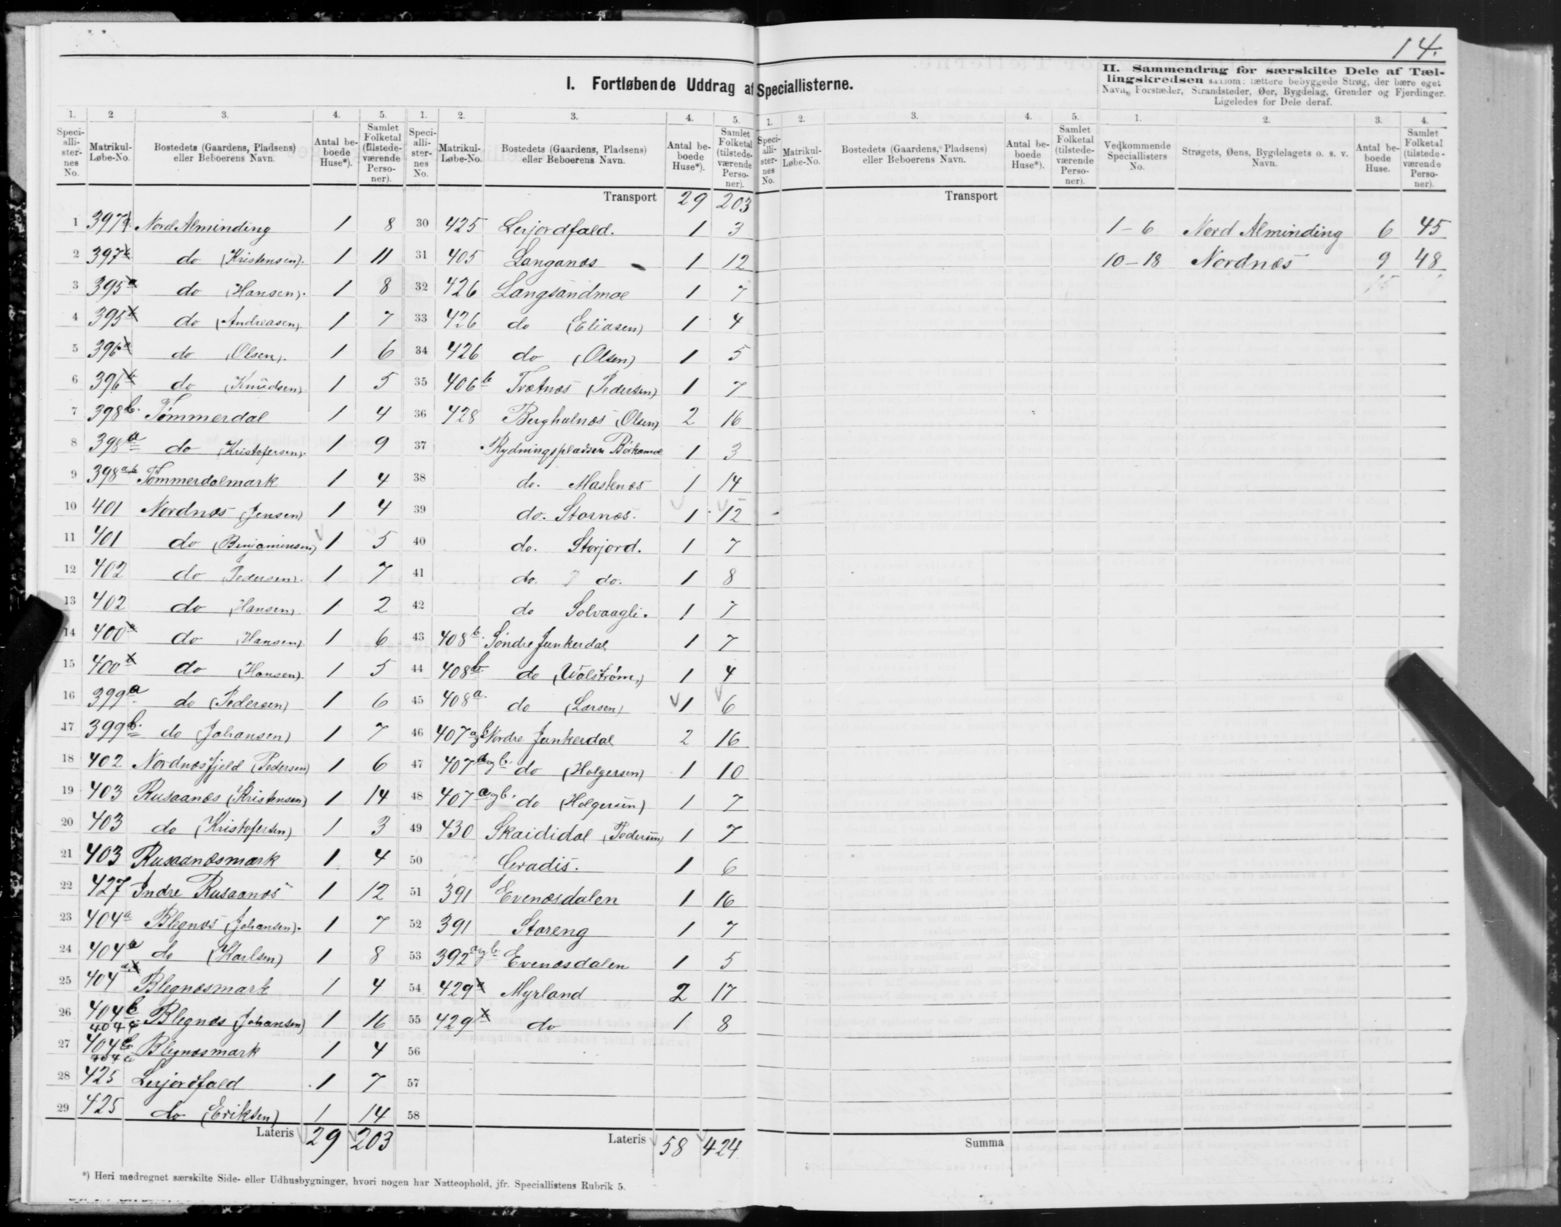 14.
I. Fortløbende Uddrag af Speciallisterne.
II. Sammendrag for særskilte Dele af Tællingskredsen saasom: tættere bebyggede Strøg, der bære eget Navn, Forstæder, Strandsteder, Øer, Bygdelag, Grender og Fjerdinger. Ligeledes for Dele deraf.
1. 2 3. 4. 5. 1. 2. 3. 4. 5. 1. 2. 3. 4. 5. 1. 2. 3. 4.
Speciallisternes No. Matrikul-Løbe-No. Bostedets (Gaardens, Pladsens) eller Beboerens Navn. Antal beboede Huse*). Samlet Folketal (tilstedeværende Personer).
Speciallisternes No. Matrikul-Løbe-No. Bostedets (Gaardens, Pladsens) eller Beboerens Navn. Antal beboede Huse*). Samlet Folketal (tilstedeværende Personer).
Speciallisternes No. Matrikul-Løbe-No. Bostedets (Gaardens, Pladsens) eller Beboerens Navn. Antal beboede Huse*). Samlet Folketal (tilstedeværende Personer).
Vedkommende Speciallisters No. Strøgets, Øens, Bygdelagets o. s. v. Navn. Antal beboede Huse. Samlet Folketal (tilstedeværende Personer).
1 397 Nord Alminding 1 8
2 397 do (Kristensen). 1 11
3 395 do (Hansen). 1 8
4 395 do (Andreasen) 1 7
5 396 do (Olsen). 1 6
6 396 do (Knudsen) 1 5
7 398 b. Tømmerdal 1 4
8 398 a do (Kristofersen). 1 9
9 398 Tømmerdalmark 1 4
10 401 Nordnæs (Jensen) 1 4
11 401 do (Benjaminsen) 1 5
12 402 do Pedersen). 1 7
13 402 do (Hansen) 1 2
14 400 do (Hansen) 1 6
15 400 do (Hansen) 1 5
16 399 a. do (Pedersen) 1 6
17 399 b. do (Johansen) 1 7
18 402 Nordnæsfjeld (Pedersen) 1 6
19 403 Rusaanæs (Kristensen) 1 14
20 403 do (Kristofersen) 1 3
21 403 Rusaanæsmark 1 4
22 427 Indre Rusaanæs 1 12
23 404 a Blegnæs (Johansen). 1 7
24 404 a do (Karlsen) 1 8
25 404 Blegnæsmark 1 4
26 404 b Blegnæs (Johansen) 1 16
27 404 b Blegnæsmark 1 4
28 425 Lerjordfald 1 7
29 425 do (Eriksen) 1 14
Lateris 29 203
Transport 29 203
30 425 Lerjordfald. 1 3
31 405 Langanæs 1 12
32 426 Langsandmoe 1 7
33 426 do (Eliasen) 1 4
34 426 do (Olsen) 1 5
35 406 b Tvætnæs (Pedersen) 1 7
36 428 Berghulnæs (Olsen) 2 16
37 Rydningspladsen 1 3
38 do. Mastenæs 1 14
39 do. Stornæs. 1 12
40 do. Storjord. 1 7
41 do. do. 1 8
42 do Solvaagli. 1 7
43 408 b. Søndre Junkerdal 1 7
44 408 b do (Wolstrøm.) 1 4
45 408 a. do (Larsen) 1 6
46 407 a og b Nordre Junkerdal 2 16
47 407 a og b. do (Holgersen) 1 10
48 407 a og b. do (Holgersen) 1 7
49 430 Skaididal (Pedersen) 1 7
50 Gradis. 1 6
51 391 Evenæsdalen 1 16
52 391 Storeng 1 7
53 392 a og b Evenæsdalen 1 5
54 429 Myrland 2 17
55 429 do 1 8
56
57
58
Lateris 58 424
Transport
Summa
1-6 Nord Alminding 6 45
10-18 Nordnæs 9 48
15
*) Heri medregnet særskilte Side- eller Udhusbygninger, hvori nogen har Natteophold, jfr. Speciallistens Rubrik 5.